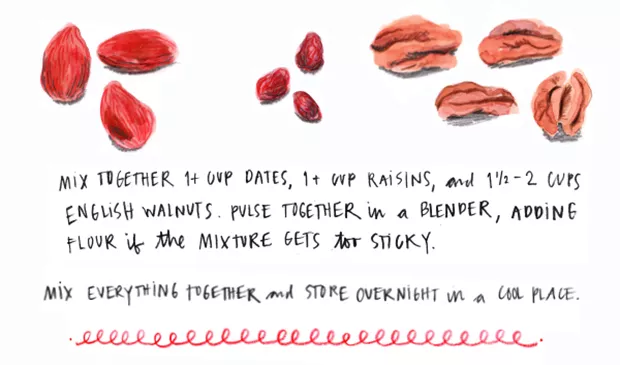 MIX TOGETHER 1+ CUP DATES, 1+ CUP RAISINS, and 1 1/2 - 2 CUPS
ENGLISH WALNUTS. PULSE TOGETHER in a BLENDER, ADDING
FLOUR if the MIXTURE GETS too STICKY.
MIX EVERYTHING TOGETHER and STORE OVERNIGHT in a COOL PLACE.